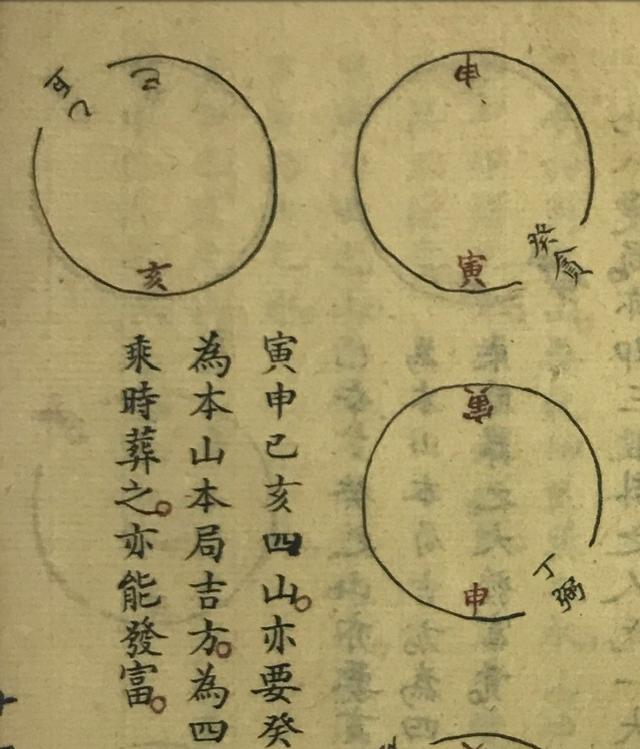 申
癸貪
寅
寅
丁弼
申
巳
亥
寅申巳亥四山亦要癸
為本山本局吉方為四
乘時葬之亦能發富